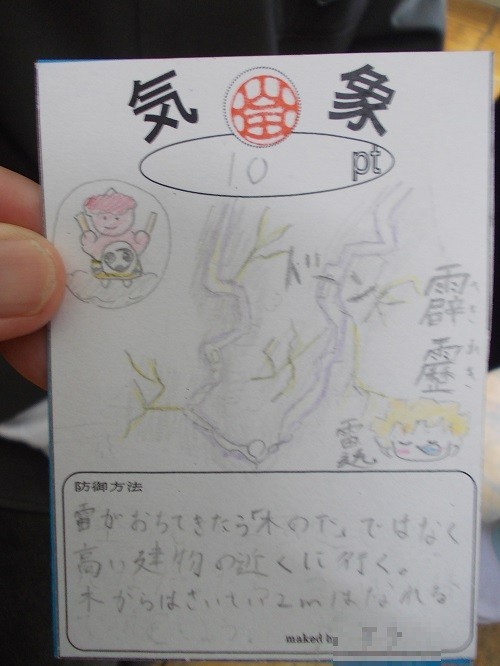 気象
10 pt
ドーン
霹靂
へきれき
防御方法
雷がおちてきたら「木の下」ではなく
高い建物の近くに行く。
木からはさいてい2mはなれる
maked by